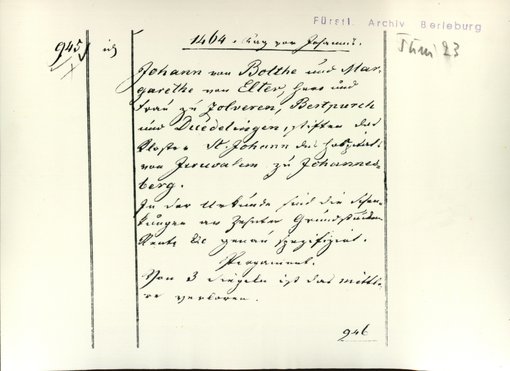 Fürstl. Archiv Berleburg
Juni 23
945 ich
1464. Tag vor Johannis.
Johann von Bolche und Mar-
garethe von Elter, Herr und
Frau zu Zolveren, Bertpurch
und Duedelingen, stiften das
Kloster St. Johann des Hospitals
von Jerusalem zu Johannes-
berg.
In der Urkunde sind die Schen-
kungen an Zehnten Grundstücken
Rente etc genau spezifiziert.
Pergament.
Von 3 Siegeln ist das mittle-
re verloren.
946